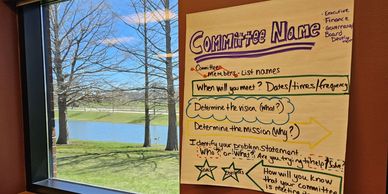 Committee Name
- Executive
- Finance
- Governance
- Board
- Committee
Members - List names
When will you meet? Dates/times/frequency
Determine the vision. (What?)
Determine the mission (Why?)
Identify your problem statement
Who? or What? Are you trying to help/
How will you know
that your committee
is meeting